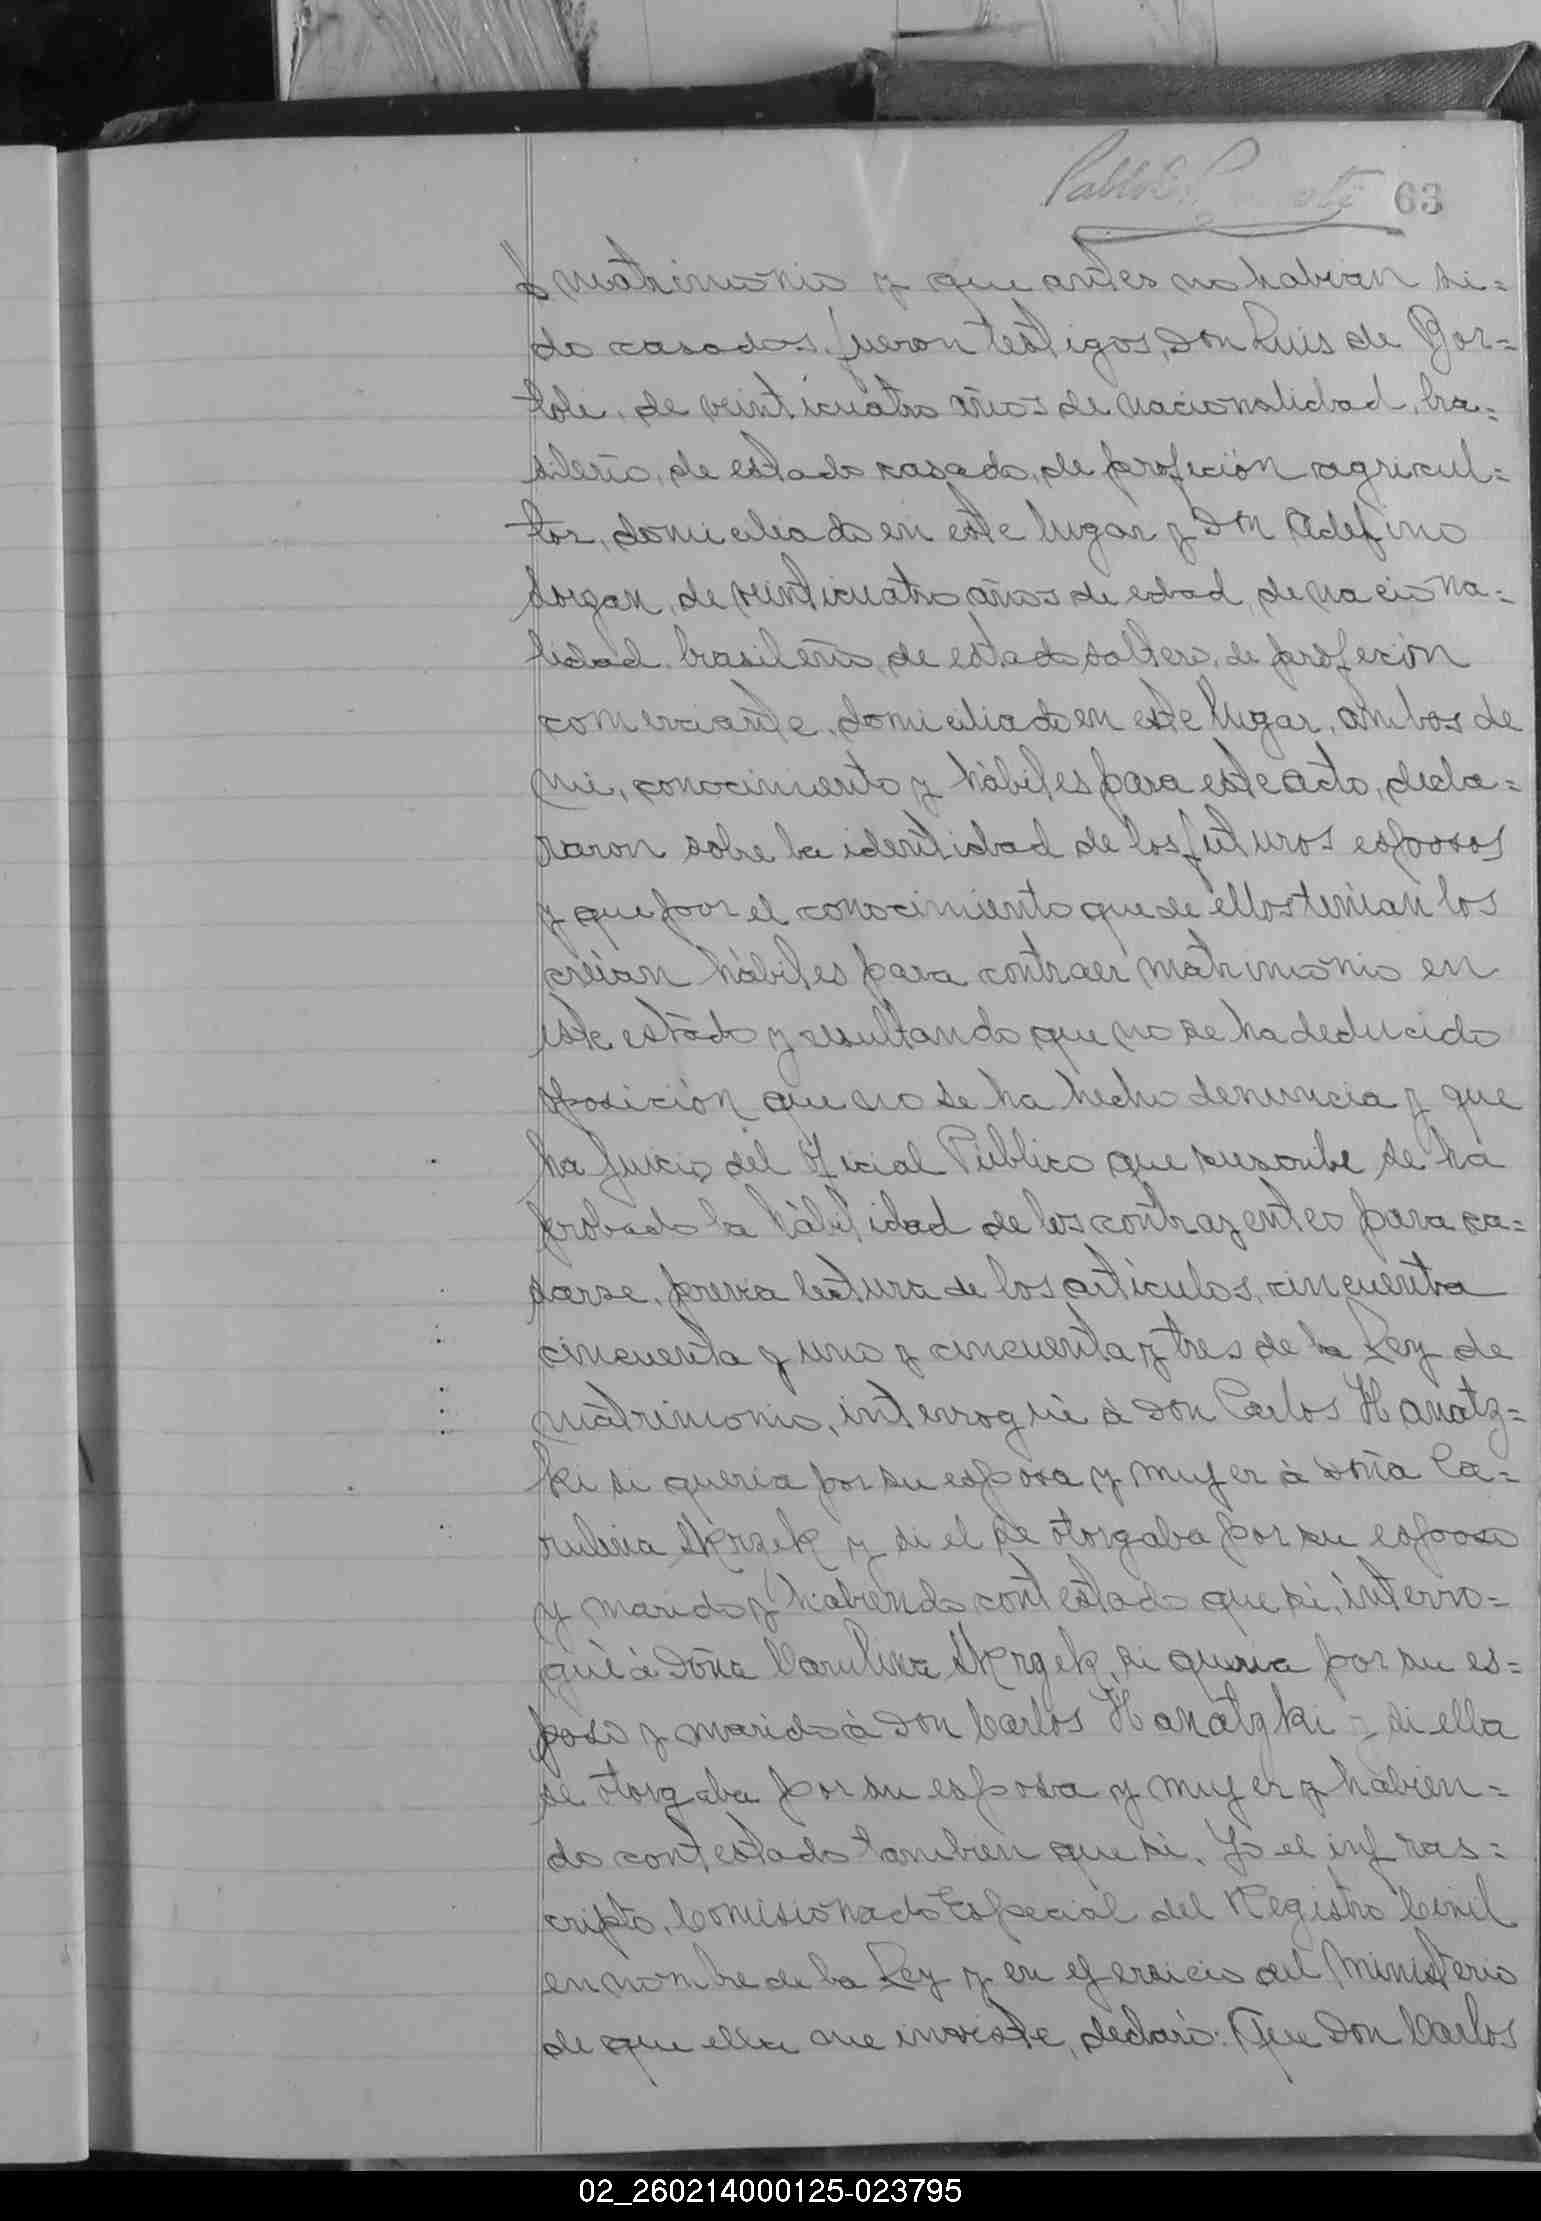 63
matrimonio y que antes no habian si=
do casados, fueron testigos, Don Luis de Bor=
toli, de veinticuatro años de nacionalidad, bra=
sileño, de estado casado, de profeción agricul=
tor, domiciliado en este lugar y Don Adefino
Sorgan, de veinticuatro años de edad, de naciona=
lidad brasileño, de estado soltero, de profeción
comerciante, domiciliado en este lugar, ambos de
mi, conocimiento y hábiles para este acto, decla=
raron sobre la identidad de los futuros esposos
y que por el conocimiento que de ellos tenian los
creían hábiles para contraer matrimonio en
este estado y resultando que no se ha deducido
oposición que no se ha hecho denuncia y que
ha juicio del Oficial Público que suscribe se ha
probado la habilidad de los contrayentes para ca=
sarse, previa lectura de los articulos, cincuenta
cincuenta y uno y cincuenta y tres de la Ley de
matrimonio, interrogué à Don Carlos Hanatz=
ki si queria por su esposa y mujer à Doña Ca=
rulina Skrzek y si el se otorgaba por su esposo
y marido y habiendo contestado que si, interro=
gué à Doña Carulina Skrzek, si queria por su es=
poso y marido à Don Carlos Hanatzki y si ella
se otorgaba por su esposa y mujer y habien=
do contestado tambien que si, Yo el infras=
cripto, Comisionado Especial del Registro Civil
en nombre de la Ley y en ejercicio del Ministerio
de que ella me inviste, declaró: Que Don Carlos
02_260214000125-023795